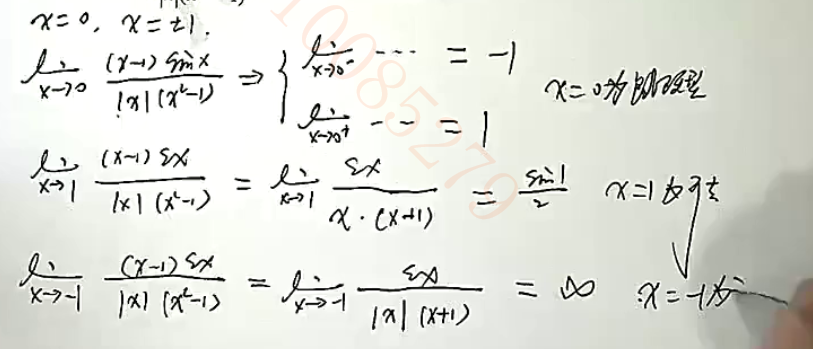 x=0, x=±1.
lim x→0 (x-1) sin x / |x| (x²-1) ⇒ { lim x→0⁻ ··· = -1
lim x→0⁺ -- = 1
x=0为跳跃型
lim x→1 (x-1) sin x / |x| (x²-1) = lim x→1 sin x / x·(x+1) = sin 1 / 2 x=1为可去
lim x→-1 (x-1) sin x / |x| (x²-1) = lim x→-1 sin x / |x| (x+1) = ∞ x=-1为
10085279